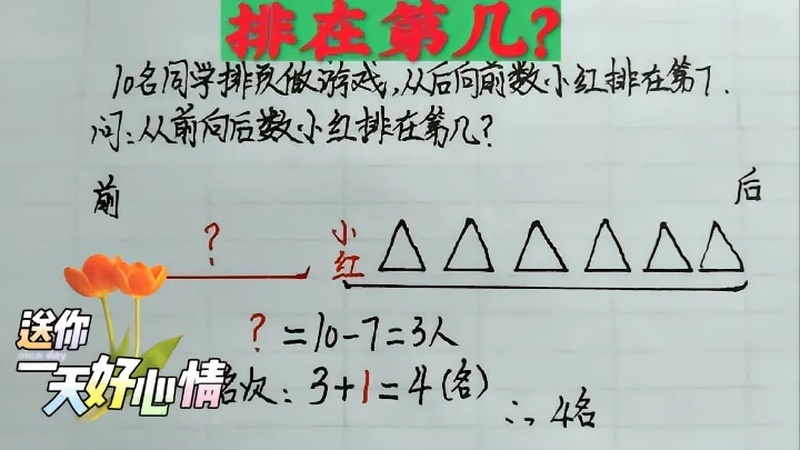 排在第几?
10名同学排队做游戏,从后向前数小红排在第7.
问:从前向后数小红排在第几?
前
后
?
小红
?=10-7=3人
名次:3+1=4(名)
∴4名
送你
nice day
一天好心情